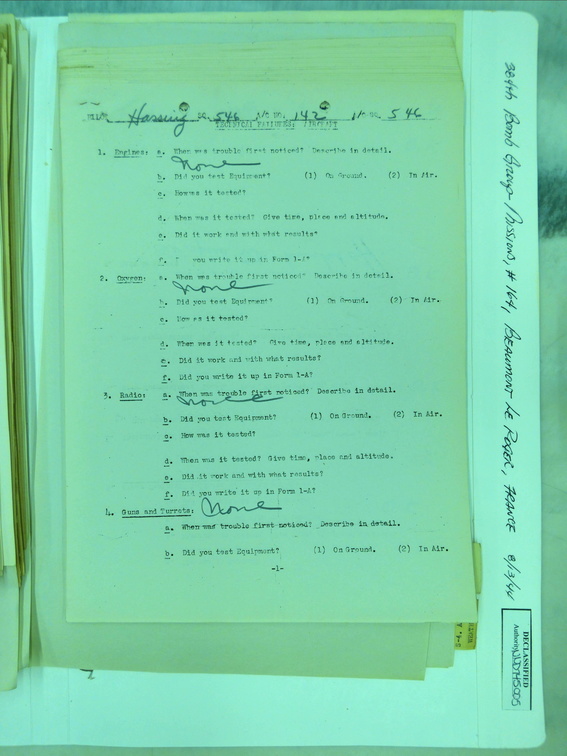 Hassing SQ. 546 A/C NO. 142 546
TECHNICAL FAILURES: AIRCRAFT
1. Engines: a. When was trouble first noticed? Describe in detail.
None
b. Did you test Equipment? (1) On Ground. (2) In Air.
c. How was it tested?
d. When was it tested? Give time, place and altitude.
e. Did it work and with what results?
f. you write it up in Form 1-A?
2. Oxygen: a. When was trouble first noticed? Describe in detail.
None
b. Did you test Equipment? (1) On Ground. (2) In Air.
c. How was it tested?
d. When was it tested? Give time, place and altitude.
e. Did it work and with what results?
f. Did you write it up in Form 1-A?
3. Radio: a. When was trouble first noticed? Describe in detail.
None
b. Did you test Equipment? (1) On Ground. (2) In Air.
c. How was it tested?
d. When was it tested? Give time, place and altitude.
e. Did it work and with what results?
f. Did you write it up in Form 1-A?
4. Guns and Turrets: None
a. When was trouble first noticed? Describe in detail.
b. Did you test Equipment? (1) On Ground. (2) In Air.
-1-
384th Bomb Group Missions, # 164, BEAUMONT LE ROGER, FRANCE 8/13/44
DECLASSIFIED
Authority NND745005